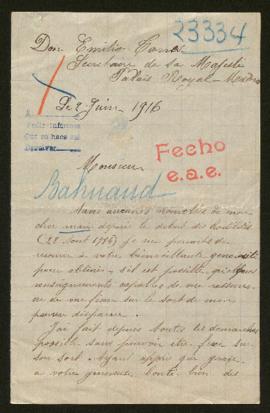 23334
Don Emilio Torres
Secrétaire de sa Majesté
Palais Royal - Madrid
2 Juin 1916
Pedir informes
Que se hace así
Fecho
e.a.e.
Monsieur
Bahuaud
Sans aucunes nouvelles de mon
cher mari depuis le début des hostilités
(28 Aout 1914) je me permets de
recourir à votre bienveillante générosité
pour obtenir, s'il est possible, quelques
renseignements capables de me rassurer
ou de me fixer sur le sort de mon
pauvre disparu.
J'ai fait depuis toutes les démarches
possible sans pouvoir être fixée sur
son sort. Ayant appris que grâce
à votre généreuse bonté bien des